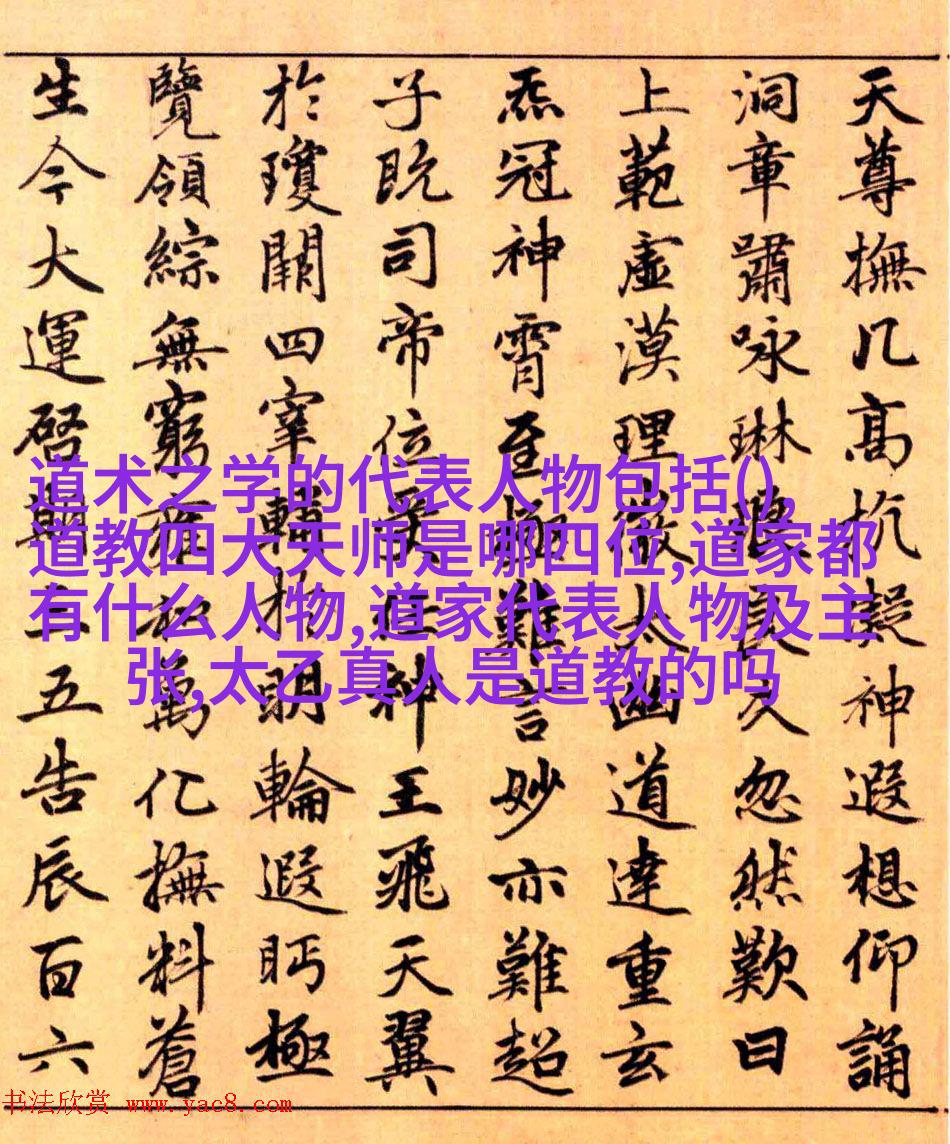 天尊撫几高抗凝神遐想仰誦
洞章嘯咏琳琅良久忽然歎曰
上範虛漠理微太幽道達重玄
炁冠神霄至極難言妙亦難超
子既司帝位神王飛天翼
於瓊闕四宰輔明輪遐眄極
覽領綜無窮萬化撫料蒼
生今大運啓期三五告辰百六
道术之学的代表人物包括(),
道教四大天师是哪四位,道家都
有什么人物,道家代表人物及主
张,太乙真人是道教的吗
书法欣赏 www.yac8.com